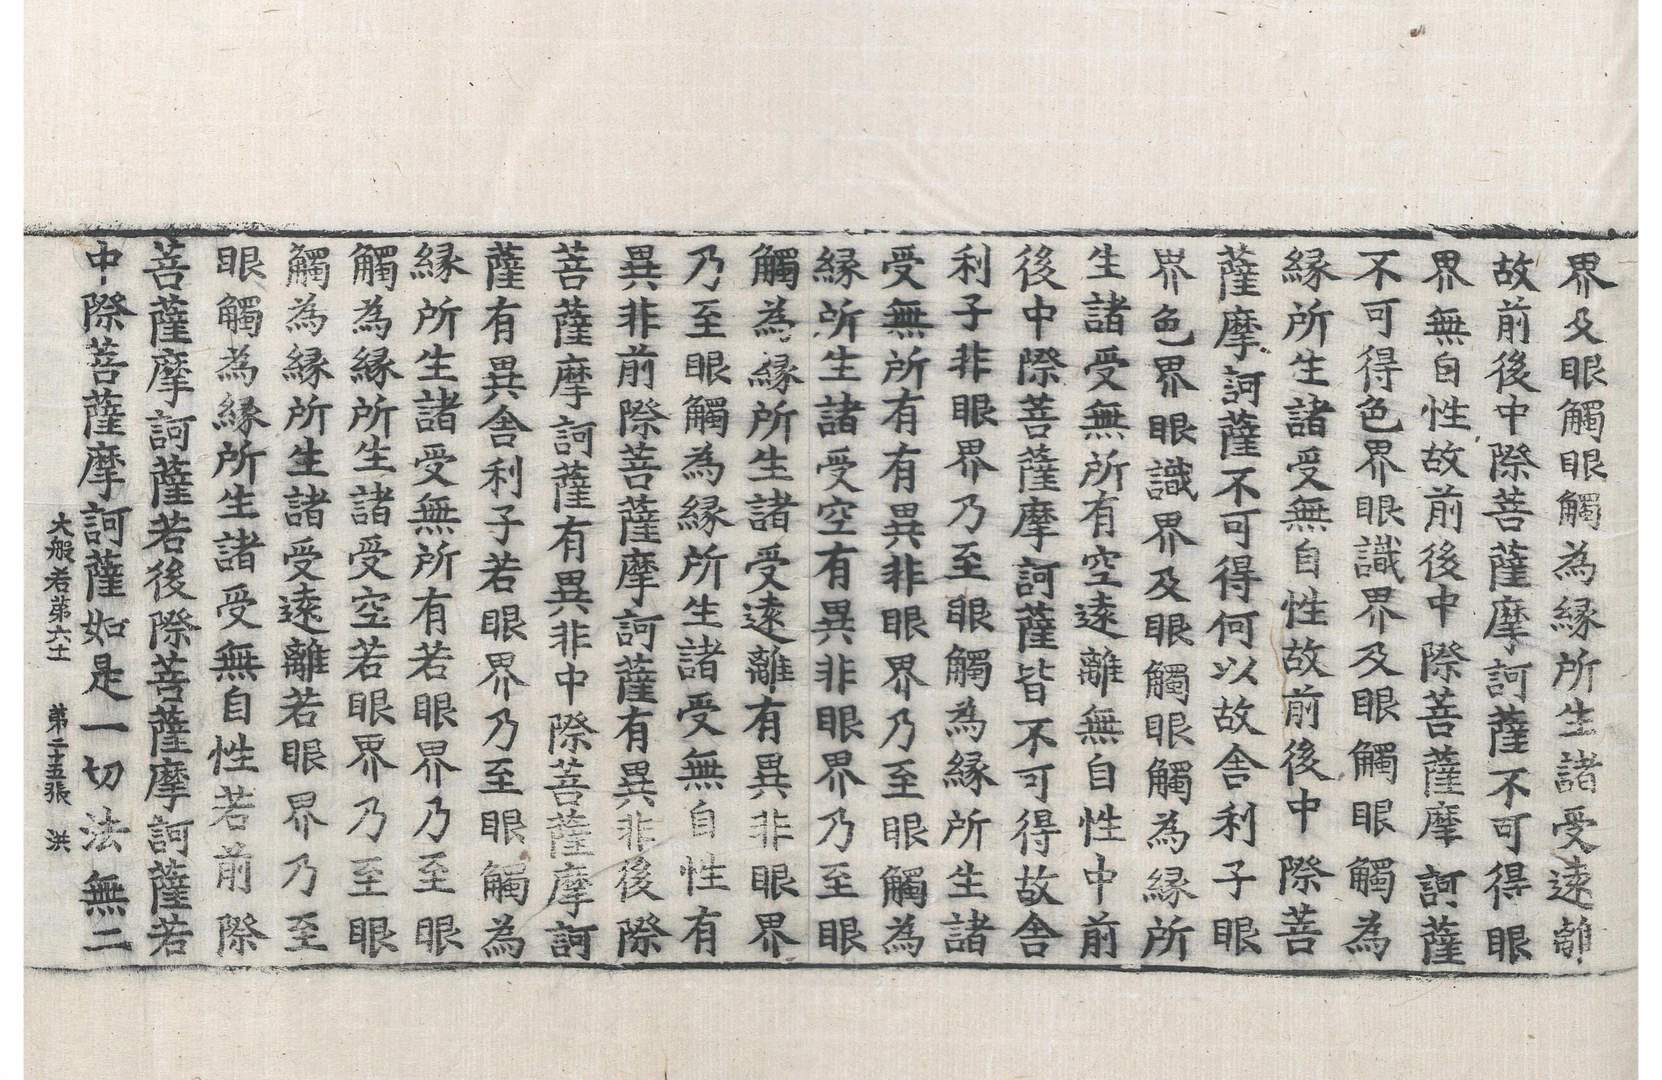 界及眼觸眼觸為縁所生諸受遠離
故前後中際菩薩摩訶薩不可得眼
界無自性故前後中際菩薩摩訶薩
不可得色界眼識界及眼觸眼觸為
縁所生諸受無自性故前後中際菩
薩摩訶薩不可得何以故舎利子眼
界色界眼識界及眼觸眼觸為縁所
生諸受無所有空遠離無自性中前
後中際菩薩摩訶薩皆不可得故舎
利子非眼界乃至眼觸為縁所生諸
受無所有有異非眼界乃至眼觸為
縁所生諸受空有異非眼界乃至眼
觸為縁所生諸受遠離有異非眼界
乃至眼觸為縁所生諸受無自性有
異非前際菩薩摩訶薩有異非後際
菩薩摩訶薩有異非中際菩薩摩訶
薩有異舎利子若眼界乃至眼觸為
縁所生諸受無所有若眼界乃至眼
觸為縁所生諸受空若眼界乃至眼
觸為縁所生諸受遠離若眼界乃至
眼觸為縁所生諸受無自性若前際
菩薩摩訶薩若後際菩薩摩訶薩若
中際菩薩摩訶薩如是一切法無二
大般若第六十 第二十五張 洪